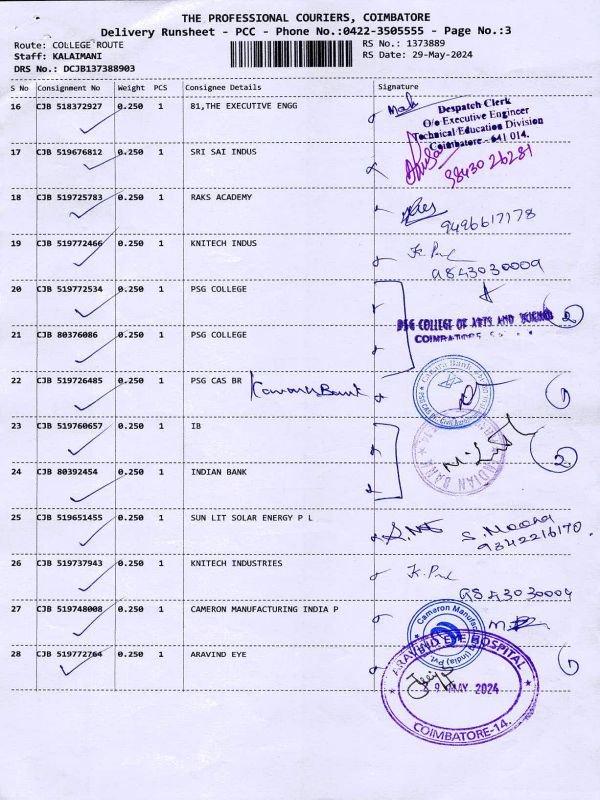 THE PROFESSIONAL COURIERS, COIMBATORE
Delivery Runsheet - PCC - Phone No.:0422-3505555 - Page No.:3
Route: COLLEGE ROUTE RS No.: 1373889
Staff: KALAIMANI RS Date: 29-May-2024
DRS No.: DCJB137388903
S No Consignment No Weight PCS Consignee Details Signature
16 CJB 518372927 0.250 1 81,THE EXECUTIVE ENGG
Despatch Clerk
O/o Executive Engineer
Technical Education Division
Coimbatore - 641 014.
17 CJB 519676812 0.250 1 SRI SAI INDUS
9843026281
18 CJB 519725783 0.250 1 RAKS ACADEMY
9496617178
19 CJB 519772466 0.250 1 KNITECH INDUS
9843030009
20 CJB 519772534 0.250 1 PSG COLLEGE
PSG COLLEGE OF ARTS AND SCIENCE 2
COIMBATORE
21 CJB 80376086 0.250 1 PSG COLLEGE
22 CJB 519726485 0.250 1 PSG CAS BR Canara Bank 1
Canara Bank
23 CJB 519760657 0.250 1 IB
24 CJB 80392454 0.250 1 INDIAN BANK 2
INDIAN BANK
25 CJB 519651455 0.250 1 SUN LIT SOLAR ENERGY P L
S. Meena
9342216170.
26 CJB 519737943 0.250 1 KNITECH INDUSTRIES
9843030009
27 CJB 519748008 0.250 1 CAMERON MANUFACTURING INDIA P
Cameron Manufac
(India) Pvt.
28 CJB 519772764 0.250 1 ARAVIND EYE 1
ARAVIND EYE HOSPITAL
29 MAY 2024
COIMBATORE-14.